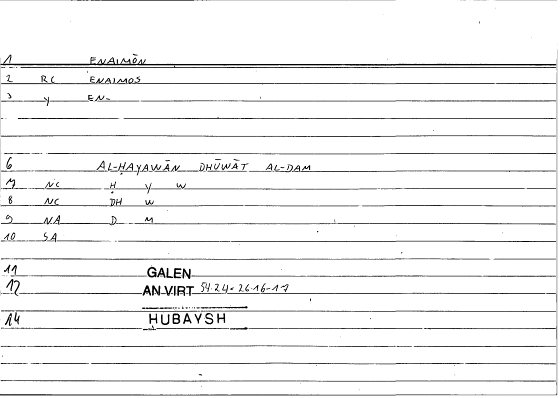 1 ENAIMŌN
2 RC ENAIMOS
3 y EN-
6 AL-ḤAYAWĀN DHŪWĀT AL-DAM
7 NC Ḥ Y W
8 NC DH W
9 NA D M
10 SA
11 GALEN
12 AN.VIRT 54.24-26.16-17
14 ḤUBAYSH